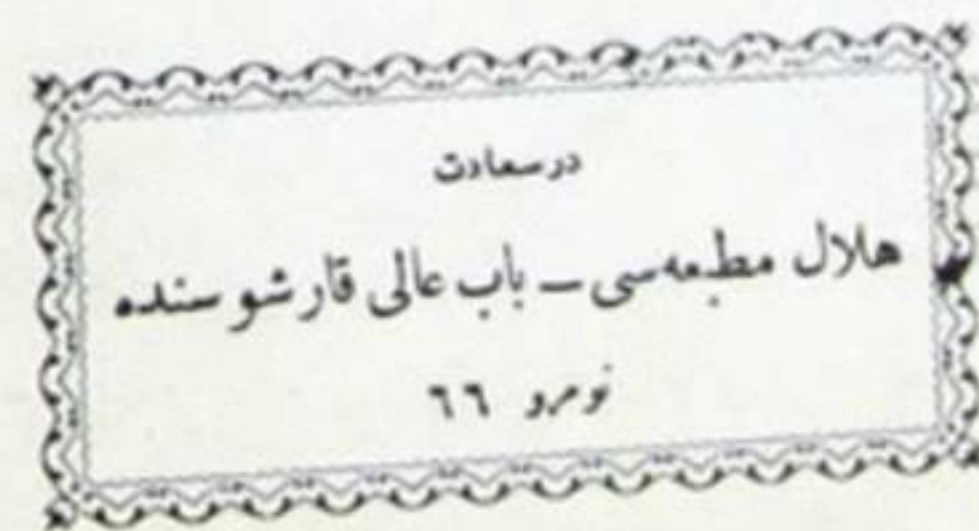 در سعادت
هلال مطبعه‌سی ـ باب عالی قارشوسنده
نومرو ٦٦